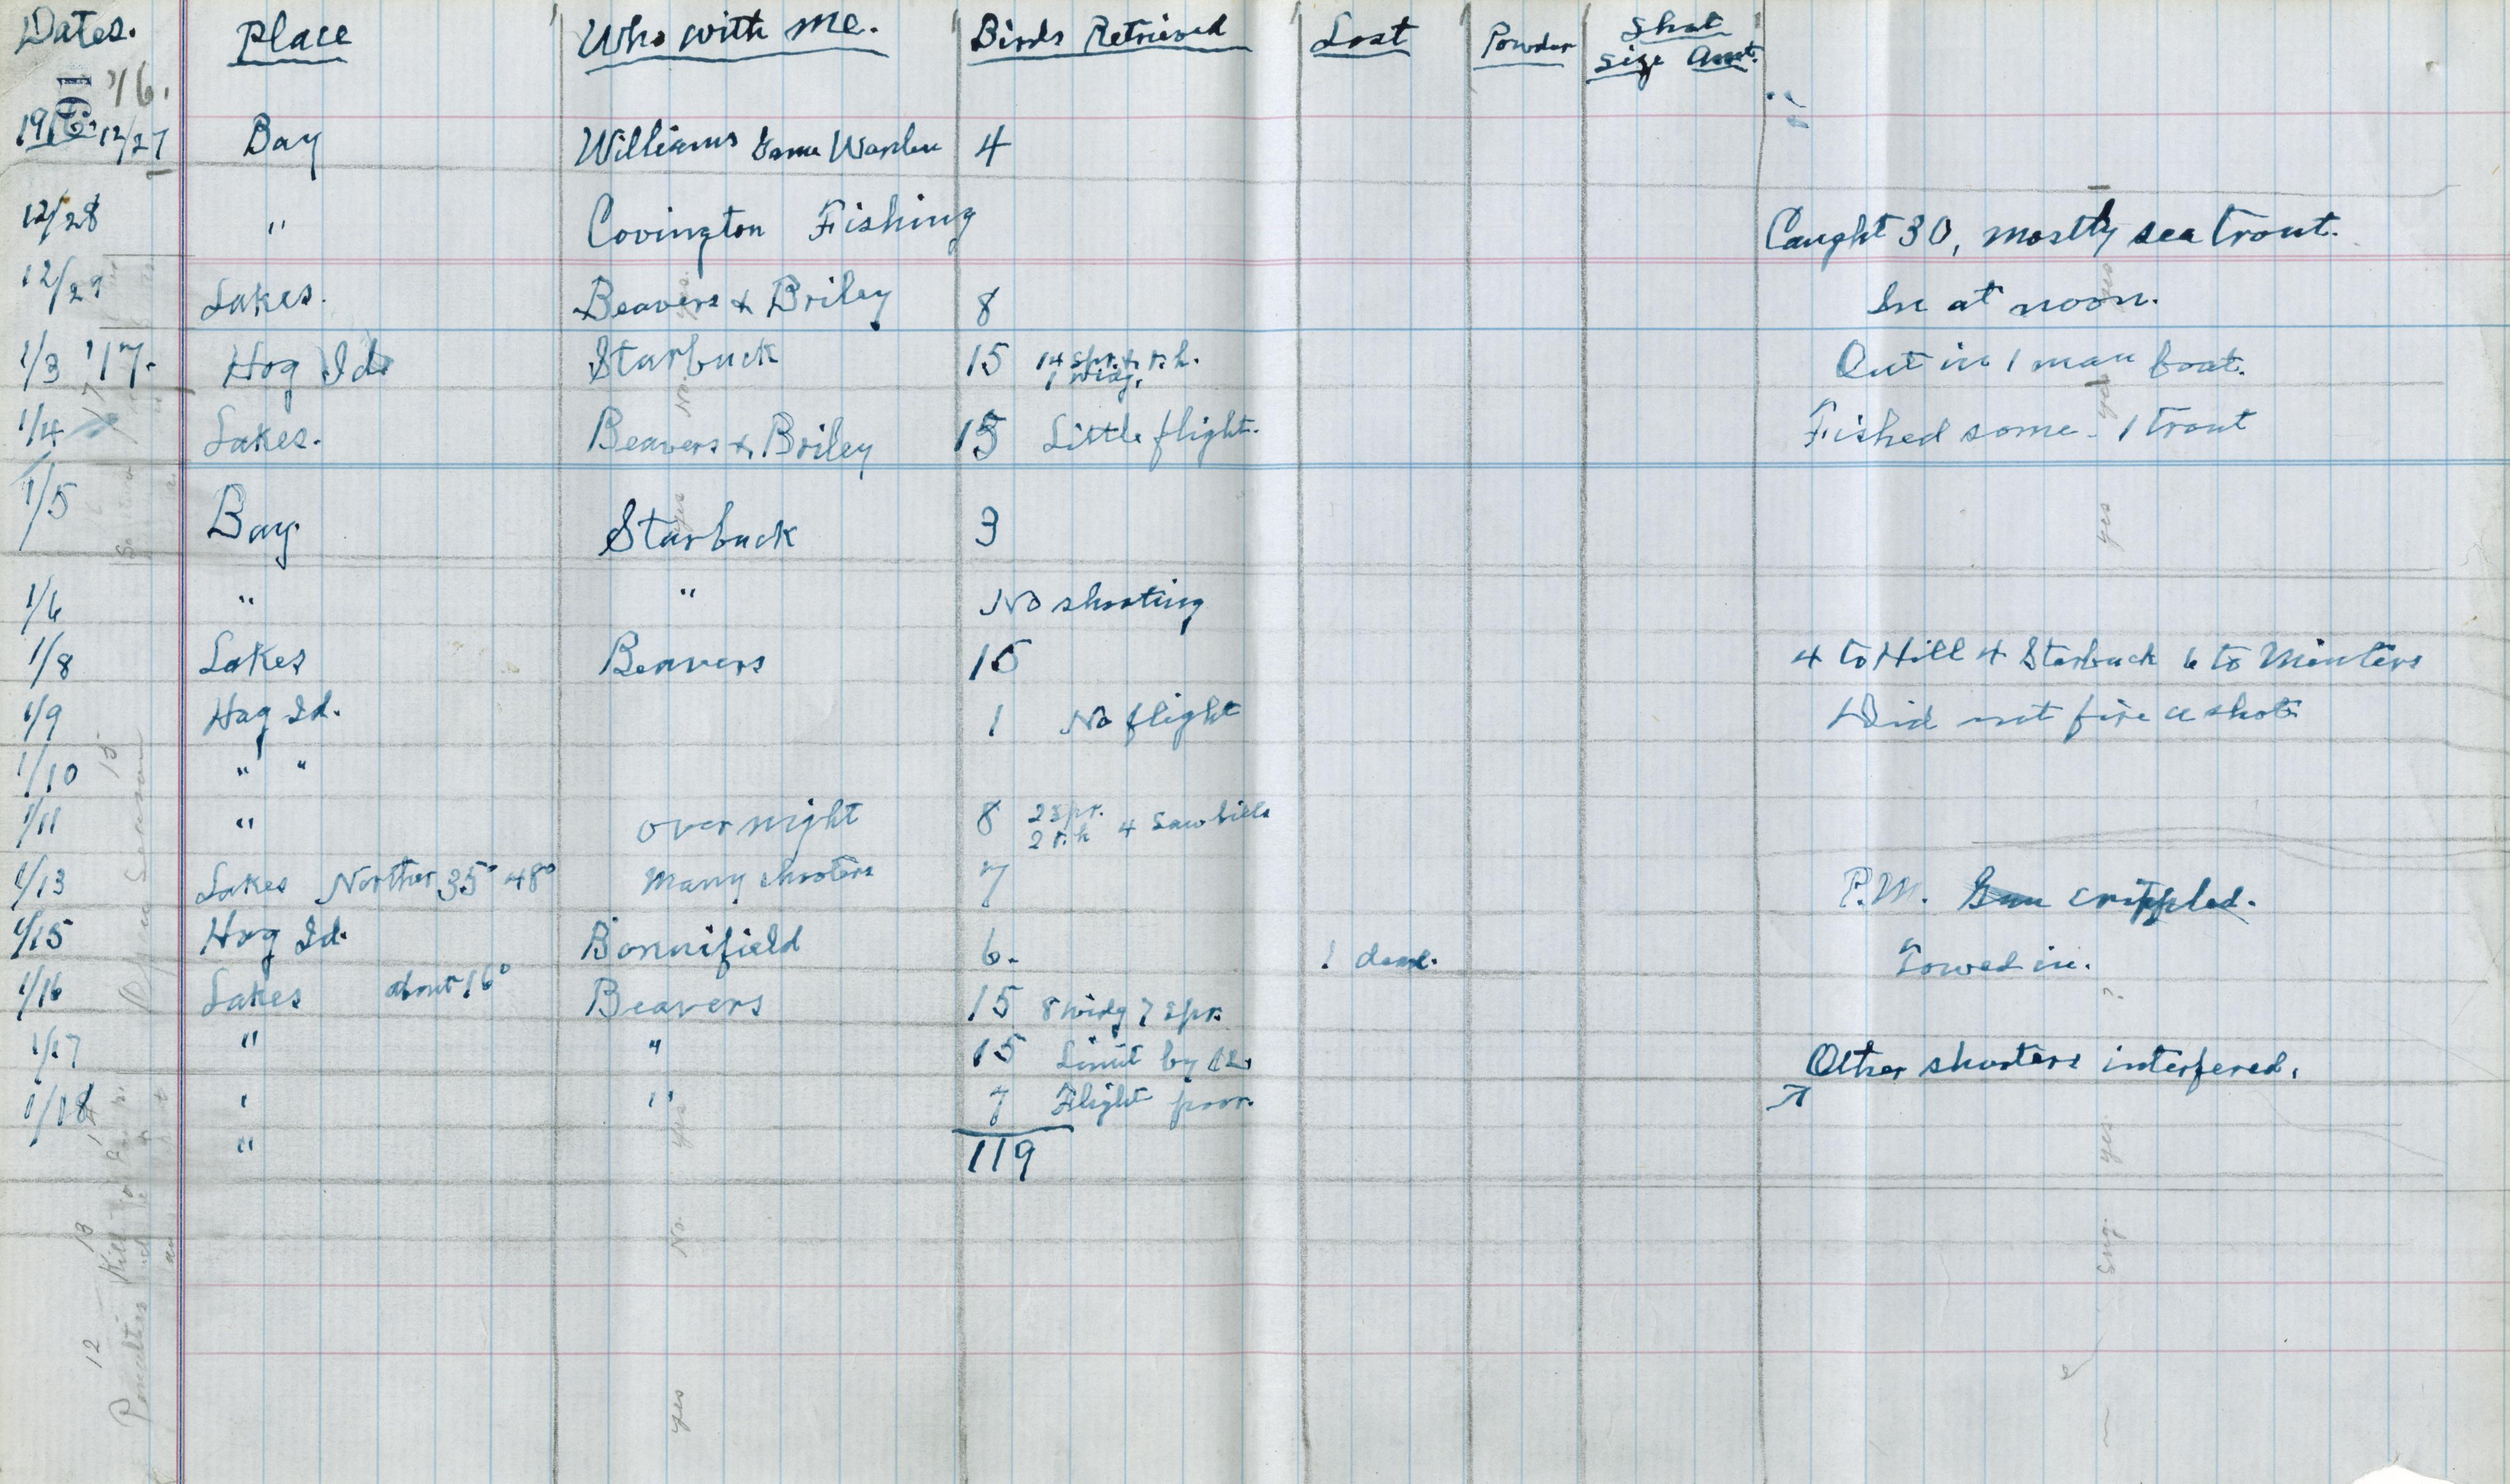 Dates. Place Who with me. Birds Retrieved Lost Powder Shot size Amt.
'16.
1916 12/27 Bay Williams Game Warden 4
12/28 " Covington Fishing Caught 30, mostly sea trout.
12/29 Lakes. Beavers & Briley 8 In at noon.
1/3 '17. Hog Id. Starbuck 15 14 spr. & r.h. 1 widg. Out in 1 man boat.
1/4 Lakes. Beavers & Briley 15 Little flight. Fished some. 1 trout
1/5 Bay. Starbuck 3
1/6 " " No shooting
1/8 Lakes Beavers 15 4 to Hill 4 Starbuck 6 to Minters
1/9 Hog Id. 1 No flight Did not fire a shot
1/10 " "
1/11 " over night 8 2 spr. 2 r.h 4 Sawbills
1/13 Lakes Norther 35° 48° Many shooters 7 P.M. Gun crippled.
1/15 Hog Id. Bonnifield 6. 1 dead. Towed in.
1/16 Lakes about 16° Beavers 15 8 widg 7 spr.
1/17 " " 15 Limit by 12. Other shooters interfered.
1/18 " " 7 Flight poor.
" 119